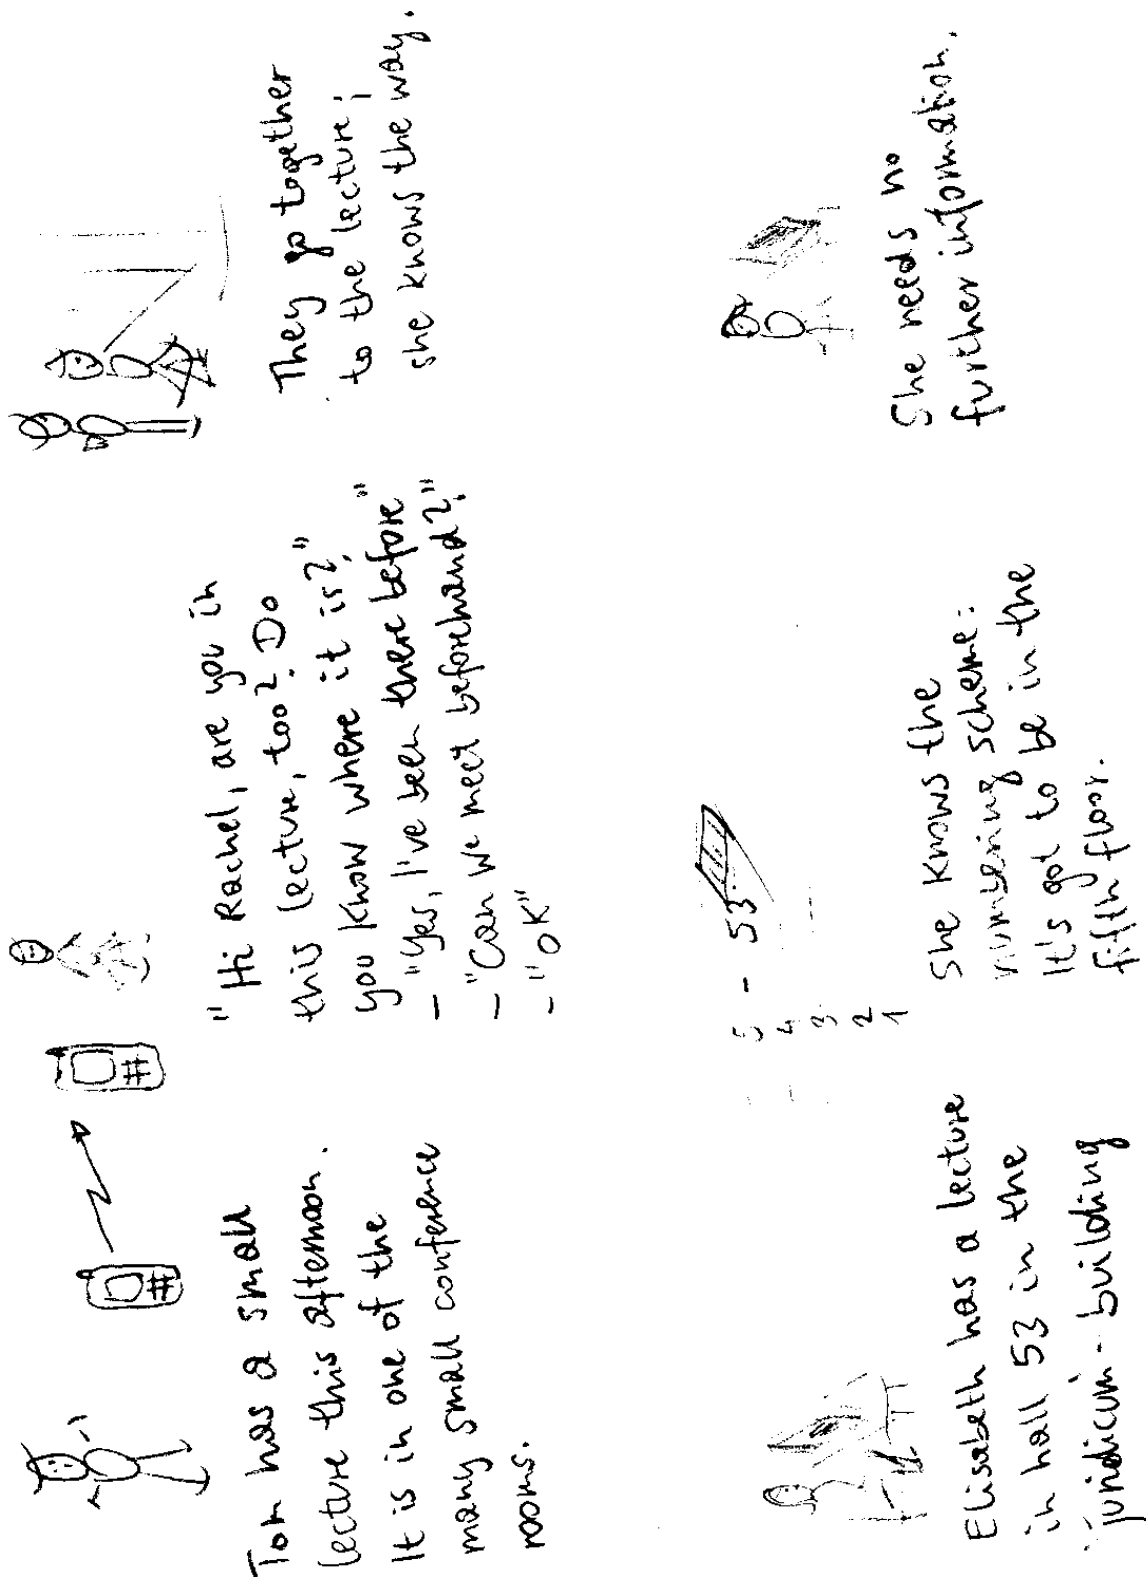 Tom has a small
lecture this afternoon.
It is in one of the
many small conference
rooms.
"Hi Rachel, are you in
this lecture, too? Do
you know where it is?"
- "Yes, I've been there before"
- "Can we meet beforehand?"
- "OK"
They go together
to the lecture;
she knows the way.
Elisabeth has a lecture
in hall 53 in the
juridicum-building
5 - 53
4
3
2
1
She knows the
numbering scheme:
It's got to be in the
fifth floor.
She needs no
further information.